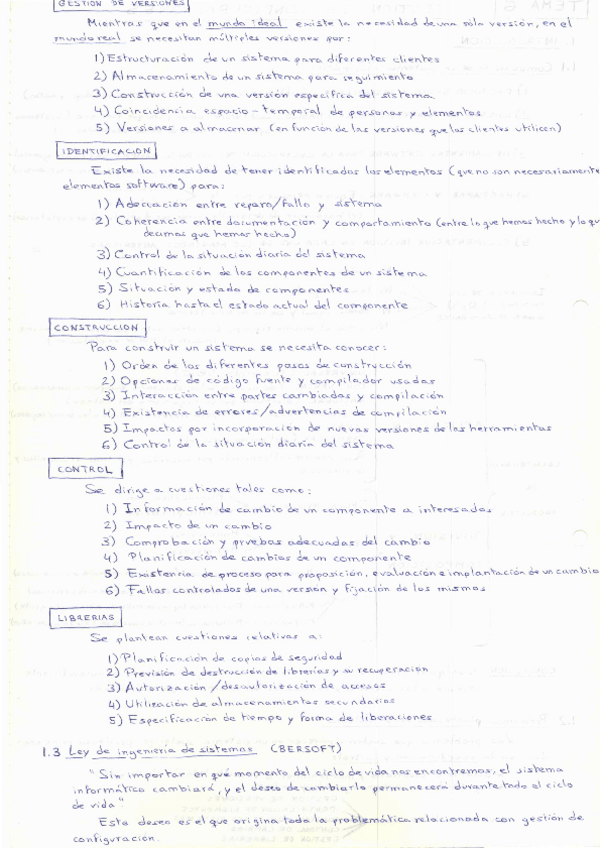 GESTION DE VERSIONES
Mientras que en el mundo ideal existe la necesidad de una sola versión, en el
mundo real se necesitan múltiples versiones por:
1) Estructuración de un sistema para diferentes clientes
2) Almacenamiento de un sistema para seguimiento
3) Construcción de una versión específica del sistema
4) Coincidencia espacio-temporal de personas y elementos
5) Versiones a almacenar (en función de las versiones que los clientes utilicen)
IDENTIFICACION
Existe la necesidad de tener identificados los elementos (que no son necesariamente
elementos software) para:
1) Adecuación entre reparo/fallo y sistema
2) Coherencia entre documentación y comportamiento (entre lo que hemos hecho y lo que
decimos que hemos hecho)
3) Control de la situación diaria del sistema
4) Cuantificación de los componentes de un sistema
5) Situación y estado de componentes
6) Historia hasta el estado actual del componente
CONSTRUCCION
Para construir un sistema se necesita conocer:
1) Orden de los diferentes pasos de construcción
2) Opciones de código fuente y compilador usadas
3) Interacción entre partes cambiadas y compilación
4) Existencia de errores/advertencias de compilación
5) Impactos por incorporación de nuevas versiones de las herramientas
6) Control de la situación diaria del sistema
CONTROL
Se dirige a cuestiones tales como:
1) Información de cambio de un componente a interesados
2) Impacto de un cambio
3) Comprobación y pruebas adecuadas del cambio
4) Planificación de cambios de un componente
5) Existencia de proceso para proposición, evaluación e implantación de un cambio
6) Fallos controlados de una version y fijación de los mismos
LIBRERIAS
Se plantean cuestiones relativas a:
1) Planificación de copias de seguridad
2) Previsión de destrucción de librerías y su recuperacion
3) Autorización/desautorización de accesos
4) Utilización de almacenamientos secundarios
5) Especificación de tiempo y forma de liberaciones
1.3 Ley de ingeniería de sistemas (BERSOFT)
"Sin importar en qué momento del ciclo de vida nos encontremos, el sistema
informático cambiará, y el deseo de cambiarlo permanecerá durante todo el ciclo
de vida".
Este deseo es el que origina toda la problemática relacionada con gestión de
configuración.